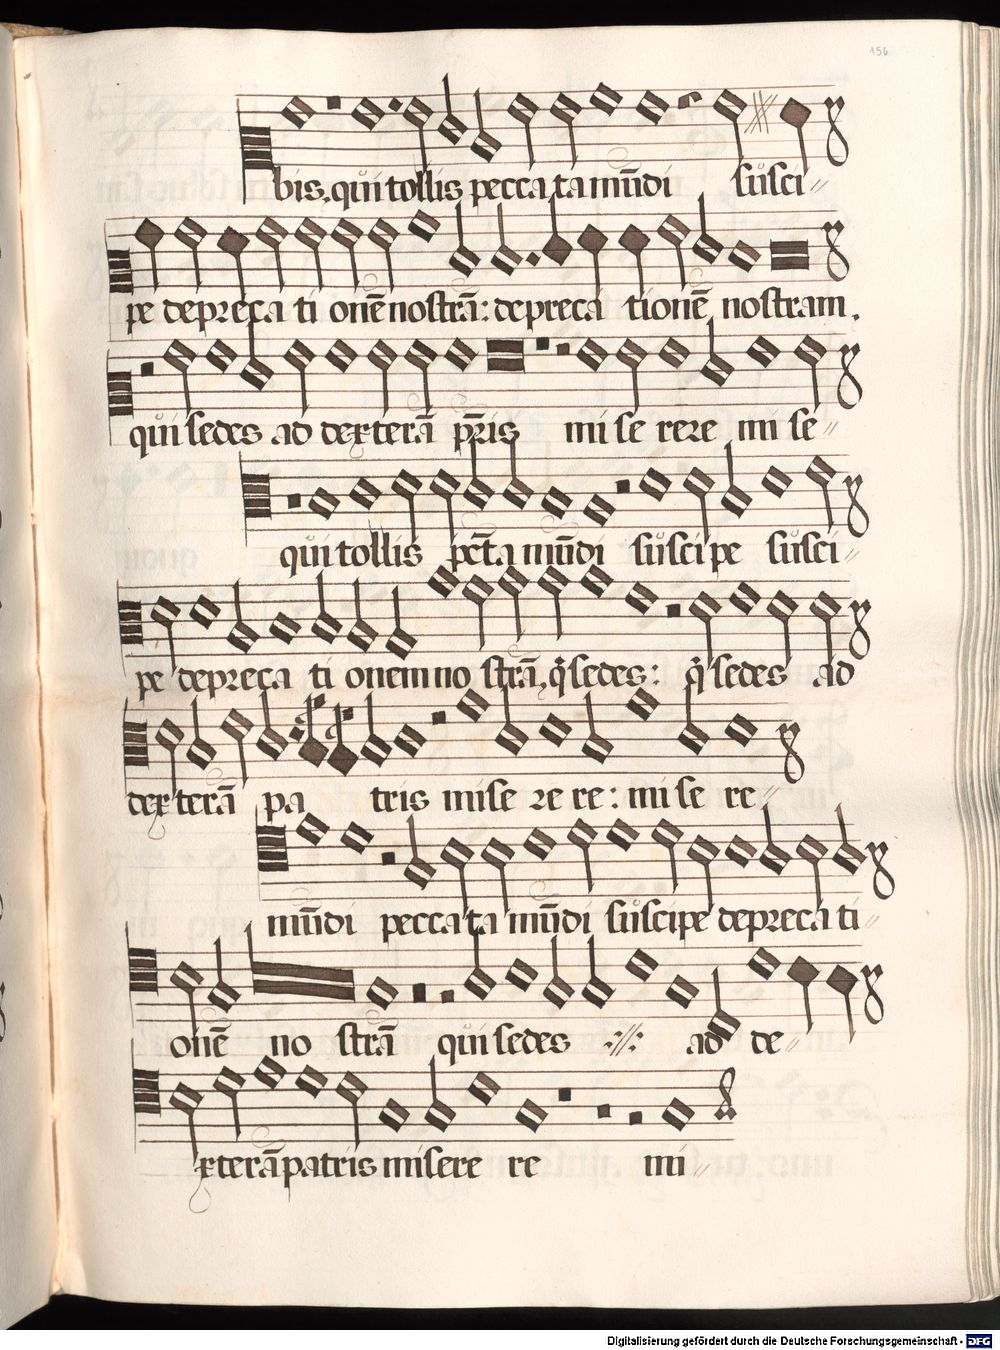 156
bis. qui tollis pecca ta mūdi susci
pe depreca ti onē nostrā: depreca tionē nostram.
qui sedes ad dexterā pr̄is mi se rere mi se
qui tollis pc̄ta mūdi suscipe susci
pe depreca ti onem no strā, q̄ sedes: q̄ sedes ad
dexterā pa tris mise re re: mi se re
mūdi pecca ta mūdi suscipe depreca ti
onē no strā qui sedes ad de
xterā patris misere re mi
Digitalisierung gefördert durch die Deutsche Forschungsgemeinschaft - DFG